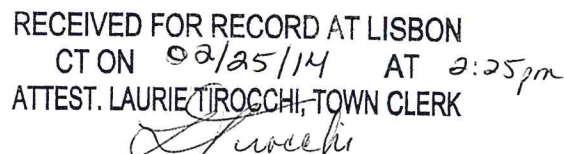 RECEIVED FOR RECORD AT LISBON
CT ON 02/25/14 AT 2:25pm
ATTEST. LAURIE TIROCCHI, TOWN CLERK
LTirocchi